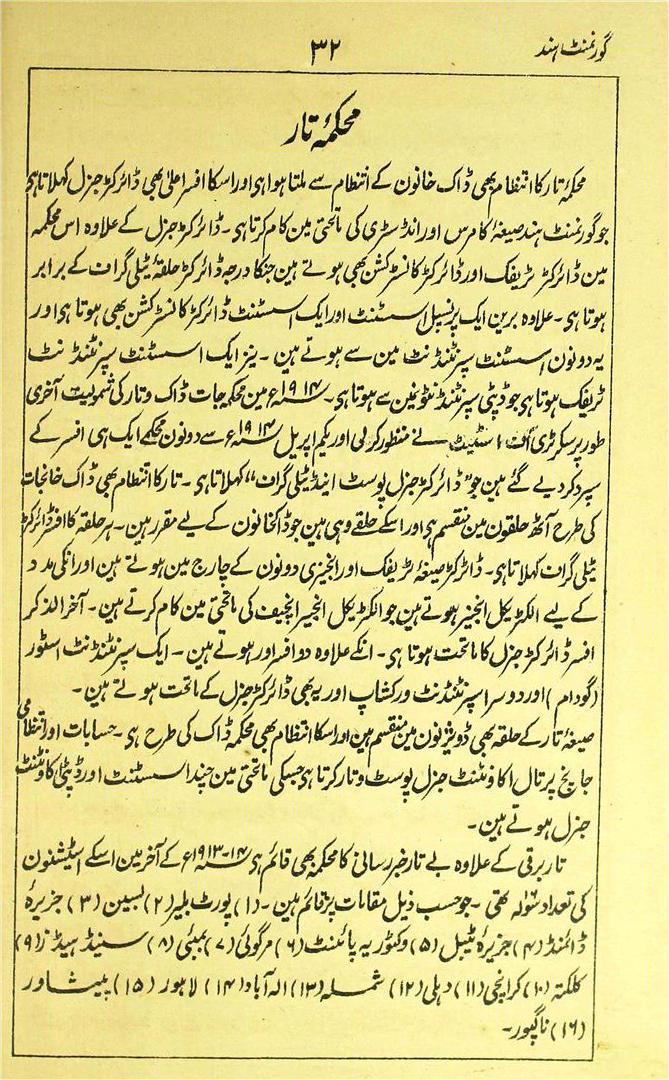 گورنمنٹ ہند
۳۲
محکمۂ تار
محکمۂ تار کا انتظام بھی ڈاک خانون کے انتظام سے ملتا ہوا ہی اور اسکا افسر اعلیٰ بھی ڈائرکٹر جنرل کہلاتا ہی
جو گورنمنٹ ہند صیغۂ کامرس اور انڈسٹری کی ماتحتی مین کام کرتا ہی۔ ڈائرکٹر جنرل کے علاوہ اس محکمہ
مین ڈائرکٹر ٹریفک اور ڈائرکٹر کانسٹرکشن بھی ہوتے ہین جنکا درجہ ڈائرکٹر حلقۂ ٹیلی گراف کے برابر
ہوتا ہی۔ علاوہ برین ایک پرنسپل اسسٹنٹ اور ایک اسسٹنٹ ڈائرکٹر کانسٹرکشن بھی ہوتا ہی اور
یہ دونون اسسٹنٹ سپرنٹنڈنٹ مین سے ہوتے ہین۔ نیز ایک اسسٹنٹ سپرنٹنڈنٹ
ٹریفک ہوتا ہی جو ڈپٹی سپرنٹنڈنٹونین سے ہوتا ہی۔ ۱۹۱۴ء مین محکمہ جات ڈاک و تار کی شمولیت آخری
طور پر سکرٹری آف اسٹیٹ نے منظور کر لی اور یکم اپریل ۱۹۱۴ء سے دونون محکمے ایک ہی افسر کے
سپرد کر دیے گئے ہین جو ”ڈائرکٹر جنرل پوسٹ اینڈ ٹیلی گراف“ کہلاتا ہی۔ تار کا انتظام بھی ڈاک خانجات
کی طرح آٹھ حلقون مین منقسم ہی اور اسکے حلقے وہی ہین جو ڈاکخانون کے لیے مقرر ہین۔ ہر حلقہ کا افسر ڈائرکٹر
ٹیلی گراف کہلاتا ہی۔ ڈائرکٹر صیغۂ ٹریفک اور انجنیری دونون کے چارج مین ہوتے ہین اور انکی مدد
کے لیے الکٹریکل انجنیر ہوتے ہین جو الکٹریکل انجنیر انچیف کی ماتحتی مین کام کرتے ہین۔ آخر الذکر
افسر ڈائرکٹر جنرل کا ماتحت ہوتا ہی۔ انکے علاوہ دو افسر اور ہوتے ہین۔ ایک سپرنٹنڈنٹ اسٹور
(گودام) اور دوسرا سپرنٹنڈنٹ ورکشاپ اور یہ بھی ڈائرکٹر جنرل کے ماتحت ہوتے ہین۔
صیغۂ تار کے حلقہ بھی ڈویژنون مین منقسم ہین اور اسکا انتظام بھی محکمۂ ڈاک کی طرح ہی۔ حسابات اور انتظامی
جانچ پرتال اکاؤنٹنٹ جنرل پوسٹ و تار کرتا ہی جسکی ماتحتی مین چند اسسٹنٹ اور ڈپٹی اکاؤنٹنٹ
جنرل ہوتے ہین۔
تار برقی کے علاوہ بے تار خبر رسانی کا محکمہ بھی قائم ہی ۱۴-۱۹۱۳ء کے آخر مین اسکے اسٹیشنون
کی تعداد سولہ تھی۔ جو حسب ذیل مقامات پر قائم ہین۔ (۱) پورٹ بلیر (۲) بسین (۳) جزیرۂ
ڈائمنڈ (۴) جزیرۂ ٹیبل (۵) وکٹوریہ پائنٹ (۶) مرگوئی (۷) بمبئی (۸) سینڈ ہیڈز (۹)
کلکتہ (۱۰) کرانچی (۱۱) دہلی (۱۲) شملہ (۱۳) الہ آباد (۱۴) لاہور (۱۵) پیشاور
(۱۶) ناگپور۔